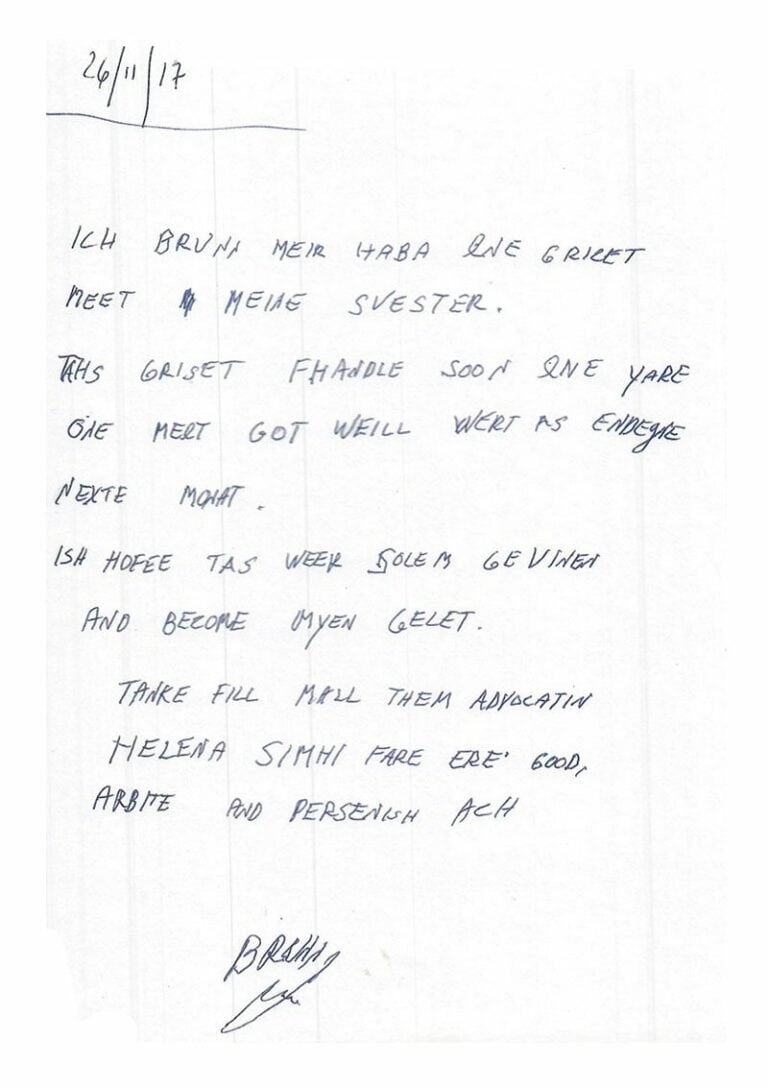 26/11/17
ICH BRUNI MEIR HABA INE GRICET
MEET MEINE SVESTER.
TAHS GRISET FHANDLE SOON INE YARE
ONE MERT GOT WEILL WERT AS ENDEGNE
NEXTE MONAT.
ISH HOFEE TAS WEER SOLEM GEVINEN
AND BECOME MYEN GELET.
TANKE FILL MALL THEM ADVOCATIN
HELENA SIMHI FARE ERE' GOOD,
ARBITE AND PERSENISH ACH